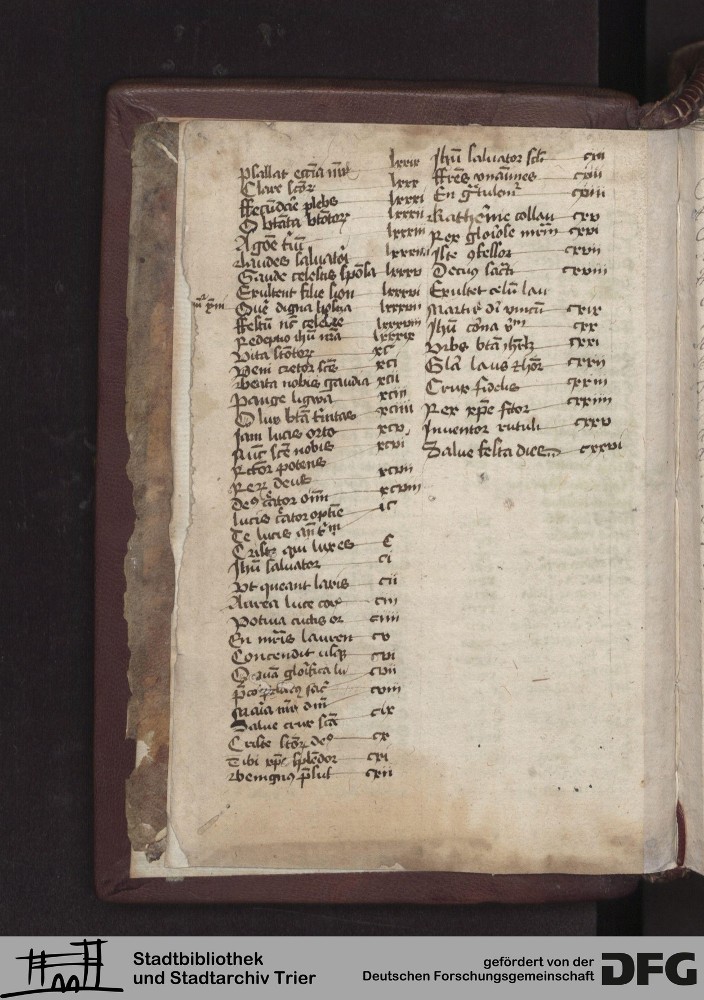 Psallat eccīa mr̄
lxxix
Clare sctōꝝ
lxxx
ffecūdate plebs
lxxxi
O btāta btōꝝ
lxxxii
Agōe tͥū
lxxxiii
Laudes saluatoͥ
lxxxiiii
Gaude celestis spōsa
lxxxv
Exultent filie syon
lxxxvi
Que digna
lxxxvii
ffestū nc̄ celebre
lxxxviii
Redeptio ihū nr̄a
lxxxix
Vita sctōꝝ
xc
Veni creator scē
xci
Beata nobis gaudia
xcii
Pange ligwa
xciii
O lux btā tͥnitas
xciiii
Jam lucis orto
xcv
Nūc scē nobis
xcvi
Rector potens
Reꝝ deus
xcvii
deꝰ cͣator oīm
xcviii
lucis cͣator optīe
ic
Te lucis an̄ tͥm
Criste qui lux es
c
Jhū saluator
ci
Vt queant laxis
cii
Aurea luce
ciii
ciiii
En mr̄is lauren
cv
Concendit
cvi
O quā gloͥfica lu
cvii
cviii
Maria mr̄ dm̄
Salue crux scā
cix
Criste sctōꝝ deꝰ
cx
Tibi xp̄e splēdor
cxi
Benignꝰ
cxii
Jhū saluator
cxii
ffrēs vnanimes
cxiii
En gͣtulemͬ
cxiiii
Katherīne collau
cxv
Rex gloͥose mr̄m
cxvi
Jste ꝯfessor
cxvii
Decus sacti
cxviii
Exultet celū lau
Martiͬ dī
cxix
Jhū corōa vͥm
cxx
Vrbs btā ihr̄lm
cxxi
Glā laus ⁊ hoͬ
cxxii
Crux fidelis
cxxiii
Rex xp̄e fͣctor
cxxiiii
Inuentor rutuli
cxxv
Salue festa dies
cxxvi
Stadtbibliothek
und Stadtarchiv Trier
gefördert von der
Deutschen Forschungsgemeinschaft
DFG